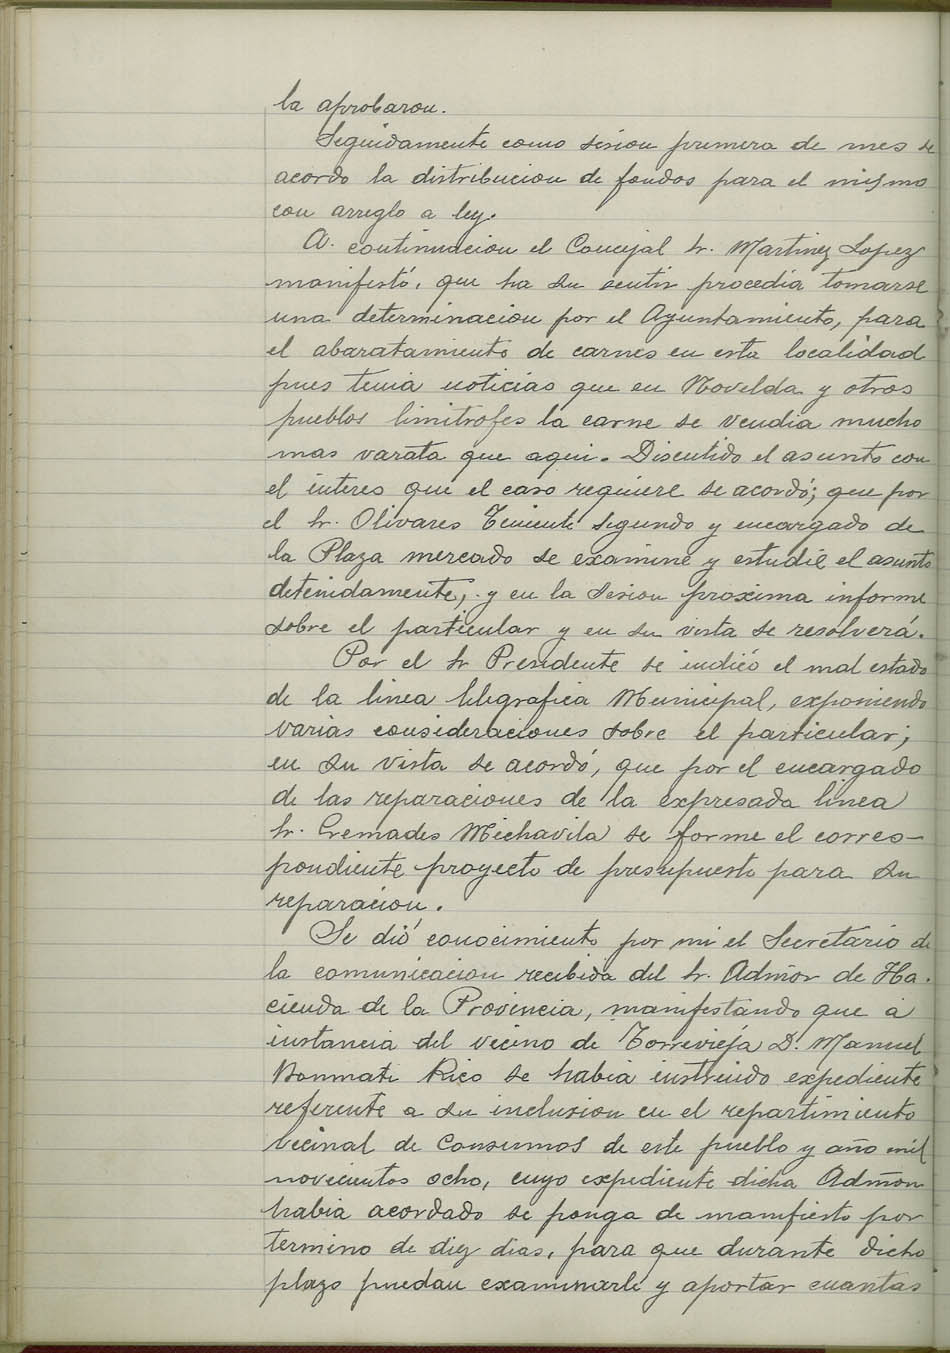 la aprobaron.
Seguidamente como sesion primera de mes se
acordo la distribucion de fondos para el mismo
con arreglo a ley.
A. continuacion el Concejal Sr. Martinez Lopez
manifestó, que ha su sentir procedia tomarse
una determinacion por el Ayuntamiento, para
el abaratamiento de carnes en esta localidad
pues tenia noticias que en Novelda y otros
pueblos limitrofes la carne se vendia mucho
mas varata que aqui. Discutido el asunto con
el interes que el caso requiere se acordó; que por
el Sr. Olivares Teniente segundo y encargado de
la Plaza mercado se examine y estudie el asunto
detenidamente; y en la sesion proxima informe
sobre el particular y en su vista se resolverá.
Por el Sr Presidente se indicó el mal estado
de la linea telegrafica Municipal, exponiendo
varias consideraciones sobre el particular;
en su vista se acordó, que por el encargado
de las reparaciones de la expresada linea
Sr. Cremades Michavila se forme el corres-
pondiente proyecto de presupuesto para su
reparacion.
Se dió conocimiento por mi el Secretario de
la comunicacion recibida del Sr. Admor de Ha-
cienda de la Provincia, manifestando que á
instancia del vecino de Torrevieja D. Manuel
Bonmati Rico se habia instruido expediente
referente a su inclusion en el repartimiento
vecinal de Consumos de este pueblo y año mil
novecientos ocho, cuyo expediente dicha Admon
habia acordado se ponga de manifiesto por
termino de diez dias, para que durante dicho
plazo puedan examinarle y aportar cuantas